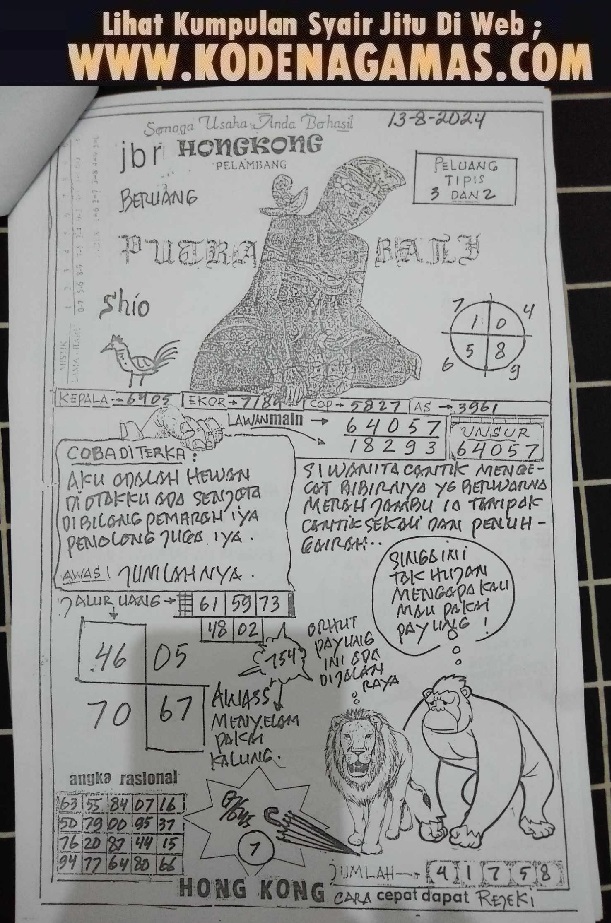 Lihat Kumpulan Syair Jitu Di Web ;
WWW.KODENAGAMAS.COM
Semoga Usaha Anda Berhasil
13-8-2024
jbr HONGKONG
PELAMBANG
PELUANG
TIPIS
3 DAN 2
BERUANG
PUTRA BALI
Shio
7 4
1 0
5 8
6 9
KEPALA 6905 EKOR 7189 COP 5827 AS 3961
LAWAN main
64057
18293
UNSUR
64057
COBA DITERKA:
AKU ADALAH HEWAN
DI OTAKKU ADA SENJATA
DIBILANG PEMARAH IYA
PENOLONG JUGA IYA.
AWAS! JUMLAHNYA.
SI WANITA CANTIK MENGE-
CAT BIBIRNYA YG BERWARNA
MERAH JAMBU IA TAMPAK
CANTIK SEKALI DAN PENUH-
GAIRAH..
SINGA INI
TAK HUJAN
MENGAPA KAU
MAU PAKAI
PAYUNG !
JALUR UANG 61 59 73
48 02
46 05
70 67
154
PAYUNG
INI ADA
DIJALAN
RAYA
AWASS
MENYELAM
PAKAI
KALUNG.
angka rasional
63 55 84 07 16
50 79 00 95 37
76 20 87 44 15
94 77 64 80 66
7
JUMLAH 4 1 7 5 8
HONG KONG CARA cepat dapat REJEKI